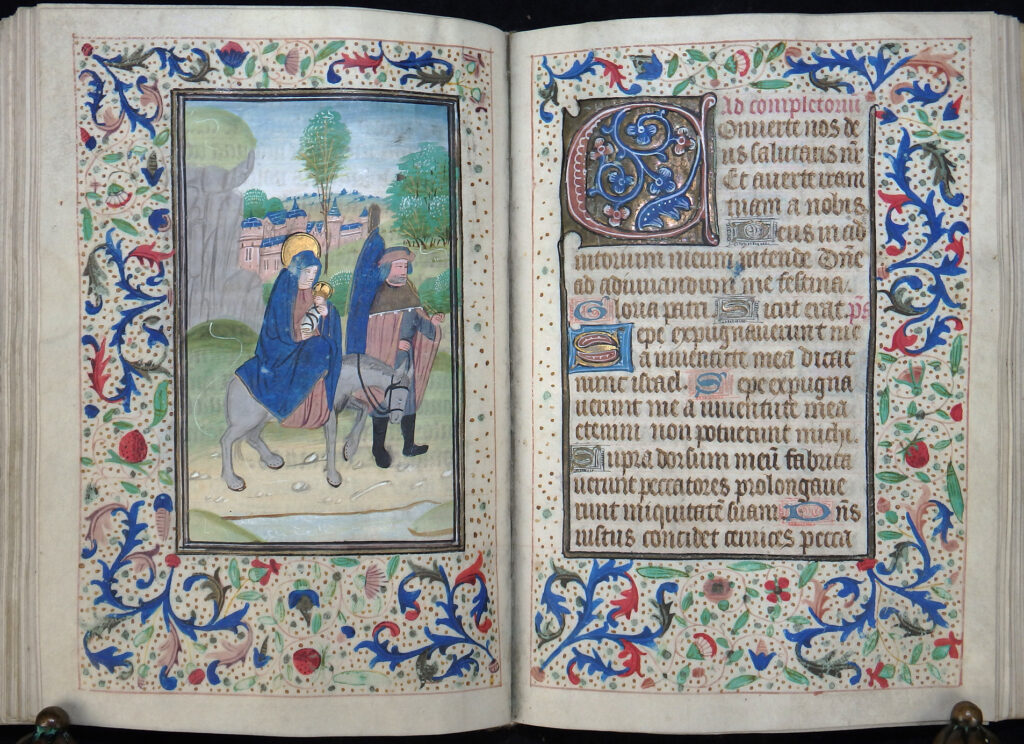 Ad completoriū
Conuerte nos de
us salutaris nr̄
Et auerte iram
tuam a nobis
Deus in adi
utorium meum intende Dn̄e
ad adiuuandum me festina.
Gloria patri Sicut erat. p̄s
Sepe expugnauerunt me
a iuuentute mea dicat
nunc israel. Sepe expugna
uerunt me a iuuentute mea
etenim non potuerunt michi.
Supra dorsum meū fabrica
uerunt peccatores prolongaue
runt iniquitatē suam Dn̄s
iustus concidet ceruices pecca